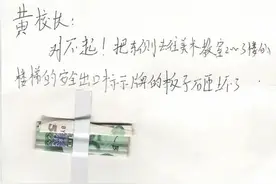 黄校长:
对不起!把东侧去往美术教室2~3楼的
楼梯的安全出口指示牌的板子石匝坏了.